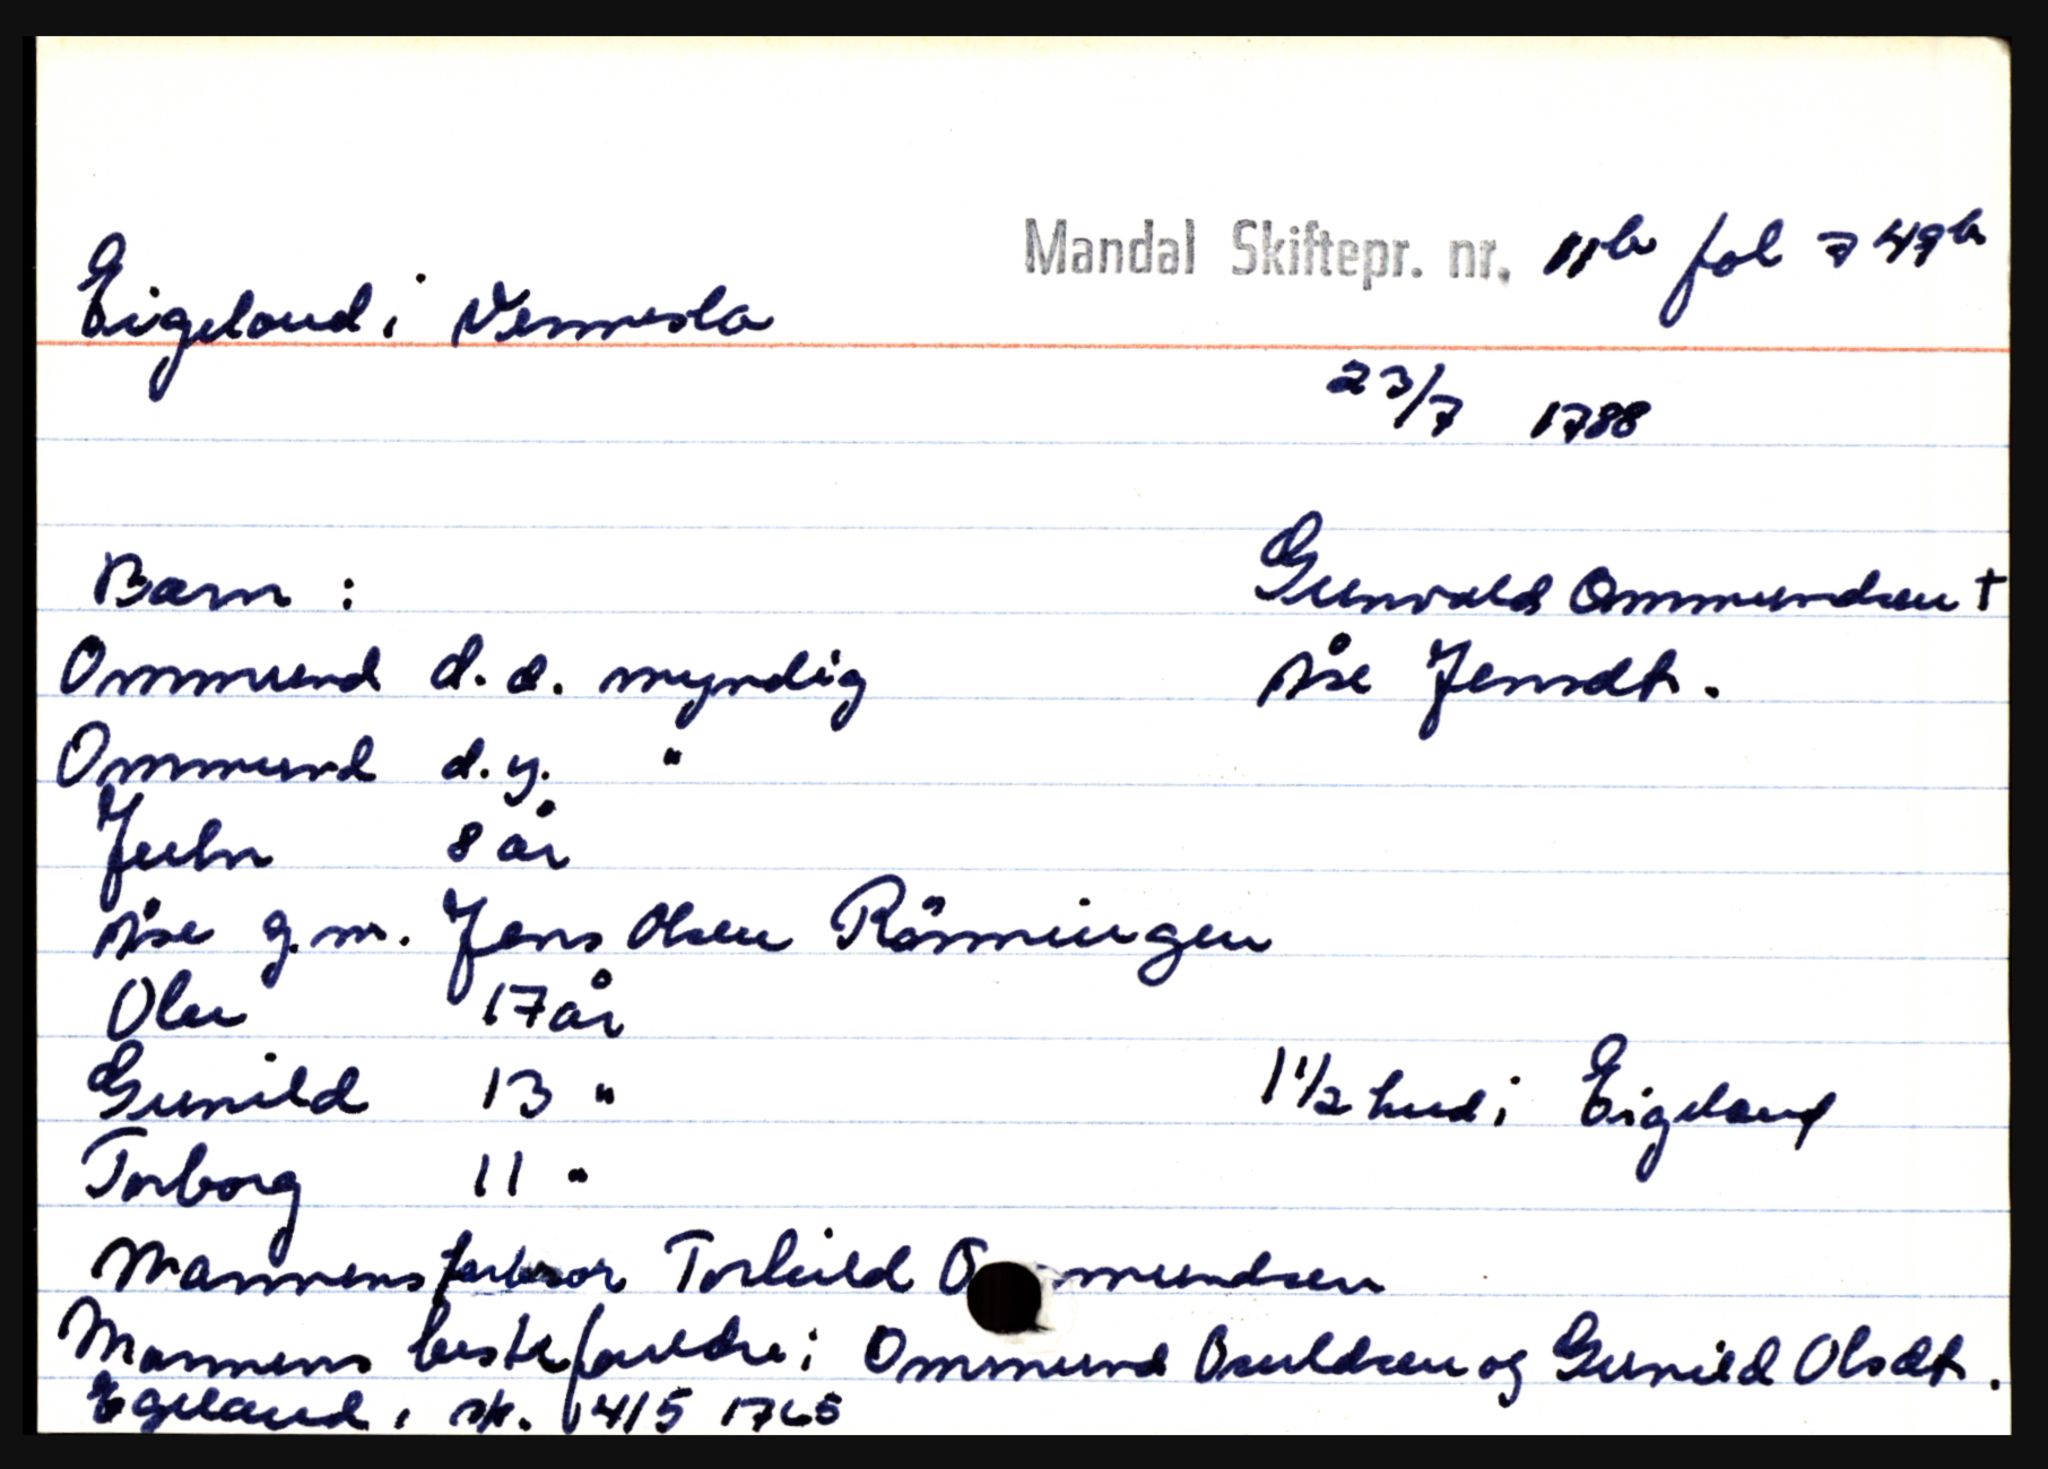 Mandal Skiftepr. nr. 11b fol 749b
Eigeland i Vennesla
23/7 1788
Barn :
Gunvald Ommundsen +
Ommund d.e. myndig
Åse Jensdt.
Ommund d.y. "
Jens 8 år
Åse g.m. Jens Olsen Rönningen
Olav 17 år
Gunild 13 "
1 1/2 hud i Eigeland
Torborg 11 "
Mannens farbror Torkild Ommundsen
Mannens besteforeldre: Ommund Osuldsen og Gunild Olsdt.
Egeland, sk. 14/5 1765